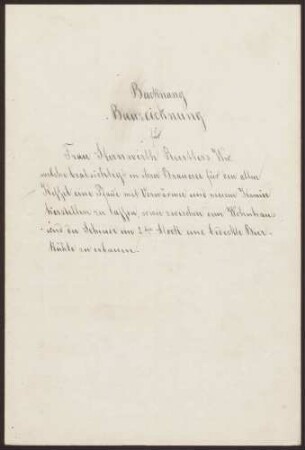 Backnang
Bauzeichnung
für
Frau Sternwirth Wwe
welche beabsichtigt in ihrer Brauerei für den alten
Kessel eine Pfade mit Vorwärmer und neuem Kamin
herstellen zu lassen, sowie zwischen dem Wohnhaus
und der Scheuer im 2ten Stock eine bedeckte Bier-
kühle zu erbauen.